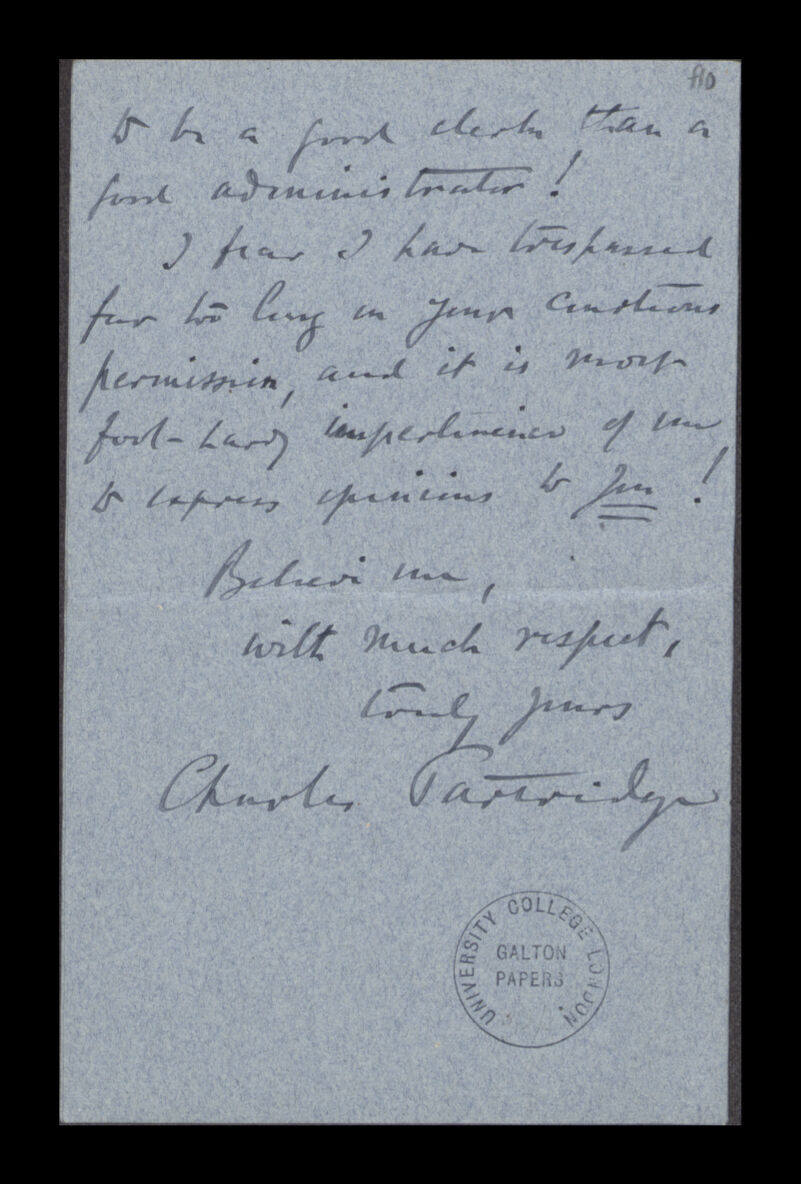 f10
to be a good clerk than a
good administrator!
I fear I have trespassed
far too long on your courteous
permission, and it is most
fool-hardy impertinence of me
to express opinions to you!
Believe me,
with much respect,
truly yours
Charles Partridge
UNIVERSITY COLLEGE LONDON
GALTON
PAPERS